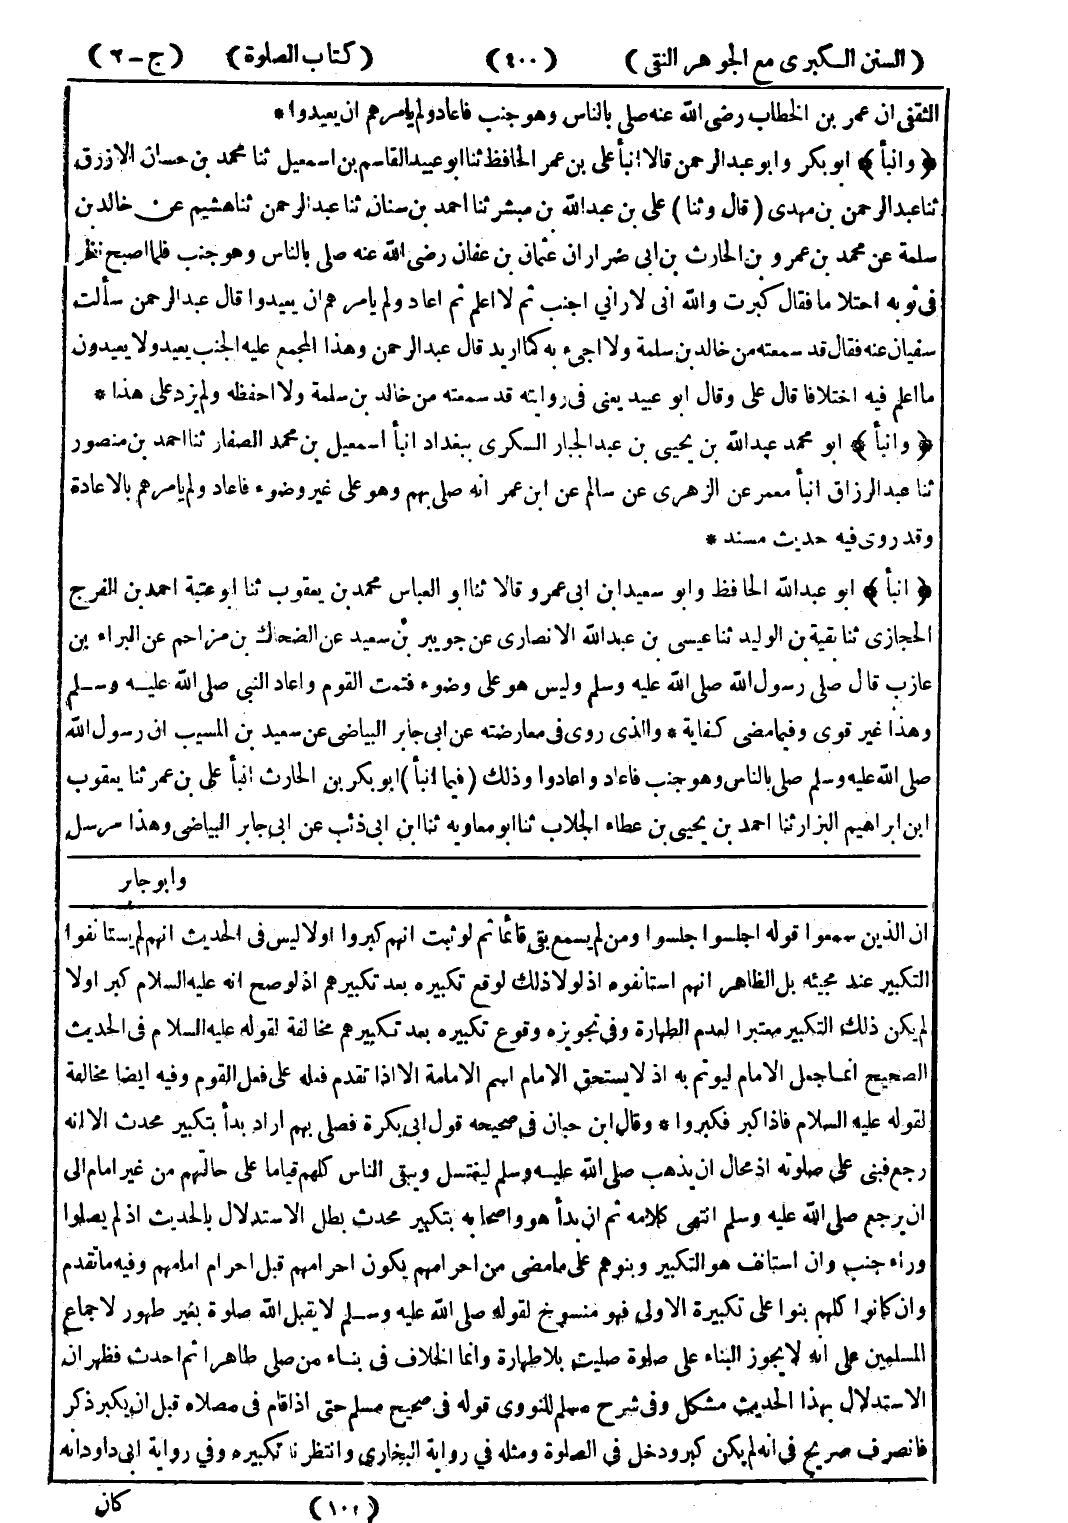 (السنن الكبرى مع الجوهر النقى) (٤٠٠) (كتاب الصلوة) (ج-٢)
الثقفى ان عمر بن الخطاب رضى الله عنه صلى بالناس وهو جنب فاعاد ولم يامرهم ان يعيدوا *
﴿ وانبأ ﴾ ابو بكر وابو عبد الرحمن قالا انبأ على بن عمر الحافظ ثنا ابو عبيد القاسم بن اسمعيل ثنا محمد بن حسان الازرق
ثنا عبد الرحمن بن مهدى (قال وثنا) على بن عبد الله بن مبشر ثنا احمد بن سنان ثنا عبد الرحمن ثنا هشيم عن خالد بن
سلمة عن محمد بن عمرو بن الحارث بن ابى ضرار ان عثمان بن عفان رضى الله عنه صلى بالناس وهو جنب فلما اصبح نظر
فى ثوبه احتلاما فقال كبرت والله انى لارانى اجنب ثم لا اعلم ثم اعاد ولم يامرهم ان يعيدوا قال عبد الرحمن سألت
سفيان عنه فقال قد سمعته من خالد بن سلمة ولا اجىء به كما اريد قال عبد الرحمن وهذا المجمع عليه الجنب يعيد ولا يعيدون
ما اعلم فيه اختلافا قال على وقال ابو عبيد يعنى فى روايته قد سمعته من خالد بن سلمة ولا احفظه ولم يزد على هذا *
﴿ وانبأ ﴾ ابو محمد عبد الله بن يحيى بن عبد الجبار السكرى ببغداد انبأ اسمعيل بن محمد الصفار ثنا احمد بن منصور
ثنا عبد الرزاق انبأ معمر عن الزهرى عن سالم عن ابن عمر انه صلى بهم وهو على غير وضوء فاعاد ولم يامرهم بالاعادة
وقد روى فيه حديث مسند *
﴿ انبأ ﴾ ابو عبد الله الحافظ وابو سعيد ابن ابى عمرو قالا ثنا ابو العباس محمد بن يعقوب ثنا ابو عتبة احمد بن الفرج
الحجازى ثنا بقية بن الوليد ثنا عيسى بن عبد الله الانصارى عن جويبر بن سعيد عن الضحاك بن مزاحم عن البراء بن
عازب قال صلى رسول الله صلى الله عليه وسلم وليس هو على وضوء فتمت القوم واعاد النبى صلى الله عليه وسلم
وهذا غير قوى وفيما مضى كفاية * والذى روى فى معارضته عن ابى جابر البياضى عن سعيد بن المسيب ان رسول الله
صلى الله عليه وسلم صلى بالناس وهو جنب فاعاد واعادوا وذلك (فيما انبأ) ابو بكر بن الحارث انبأ على بن عمر ثنا يعقوب
ابن ابراهيم البزار ثنا احمد بن يحيى بن عطاء الجلاب ثنا ابو معاويه ثنا ابن ابى ذئب عن ابى جابر البياضى وهذا مرسل
وابو جابر
ان الذين سمعوا قوله اجلسوا جلسوا ومن لم يسمع بقى قائما ثم لو ثبت انهم كبروا اولا ليس فى الحديث انهم لم يستانفوا
التكبير عند مجيئه بل الظاهر انهم استانفوه اذ لولا ذلك لوقع تكبيره بعد تكبيرهم اذ لو صح انه عليه السلام كبر اولا
لم يكن ذلك التكبير معتبرا لعدم الطهارة وفى تجويزه وقوع تكبيره بعد تكبيرهم مخالفة لقوله عليه السلام فى الحديث
الصحيح انما جعل الامام ليوتم به اذ لا يستحق الامام اسم الامامة الا اذا تقدم فعله على فعل القوم وفيه ايضا مخالفة
لقوله عليه السلام فاذا كبر فكبروا * وقال ابن حبان فى صحيحه قول ابى بكرة فصلى بهم اراد بدأ بتكبير محدث الا انه
رجع فبنى على صلوته اذ محال ان يذهب صلى الله عليه وسلم ليغتسل ويبقى الناس كلهم قياما على حالتهم من غير امام الى
ان يرجع صلى الله عليه وسلم انتهى كلامه ثم ان بدأ هو واصحابه بتكبير محدث بطل الاستدلال بالحديث اذ لم يصلوا
وراء جنب وان استانف هو التكبير وبنوهم على ما مضى من احرامهم يكون احرامهم قبل احرام امامهم وفيه ما تقدم
وان كانوا كلهم بنوا على تكبيرة الاولى فهو منسوخ لقوله صلى الله عليه وسلم لا يقبل الله صلوة بغير طهور لاجماع
المسلمين على انه لا يجوز البناء على صلوة صليت بلا طهارة وانما الخلاف فى بناء من صلى طاهرا ثم احدث فظهر ان
الاستدلال بهذا الحديث مشكل وفى شرح مسلم للنووى قوله فى صحيح مسلم حتى اذا قام فى مصلاه قبل ان يكبر ذكر
فانصرف صريح فى انه لم يكن كبر ودخل فى الصلوة ومثله في رواية البخارى وانتظرنا تكبيره وفي رواية ابى داود انه
(١٠٠) كان